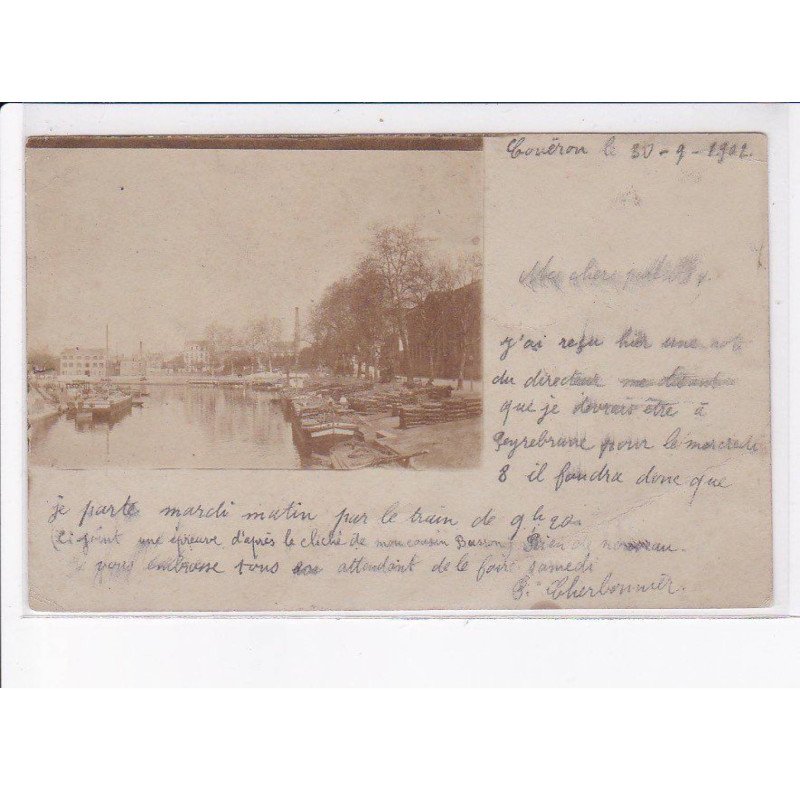 Couëron le 30-9-1902.
Mes chers
j'ai reçu hier une note
du directeur me
que je devrais être à
Peyrebrune pour le mercredi
8 il faudra donc que
je parte mardi matin par le train de 9h20.
Ci-joint une épreuve d'après le cliché de mon cousin Busson Rien de nouveau.
Je vous embrasse tous en attendant de le faire samedi
Cherbonnier.